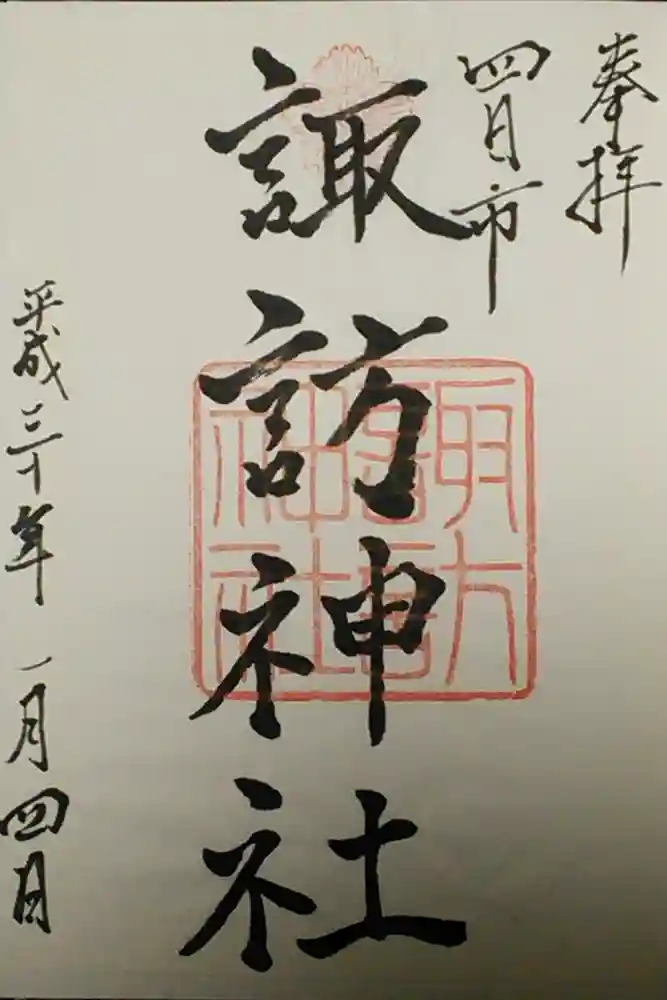 奉拝
四日市
諏訪神社
諏訪神社
平成三十年一月四日